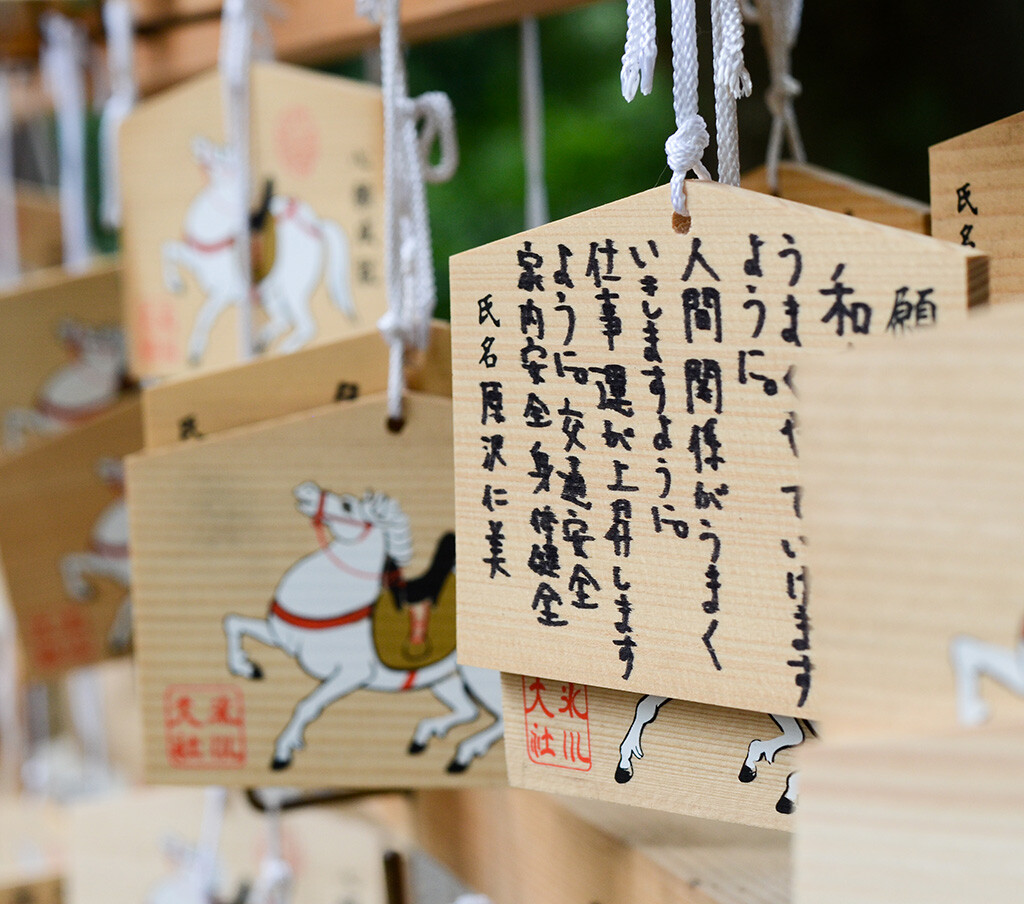 願
和
うまくやっていけます
ように。
人間関係がうまく
いきしますように。
仕事運が上昇します
ように。交通安全
家内安全身体健全
氏名原沢仁美
氏名
氷川
大社
氷川
大社
氏